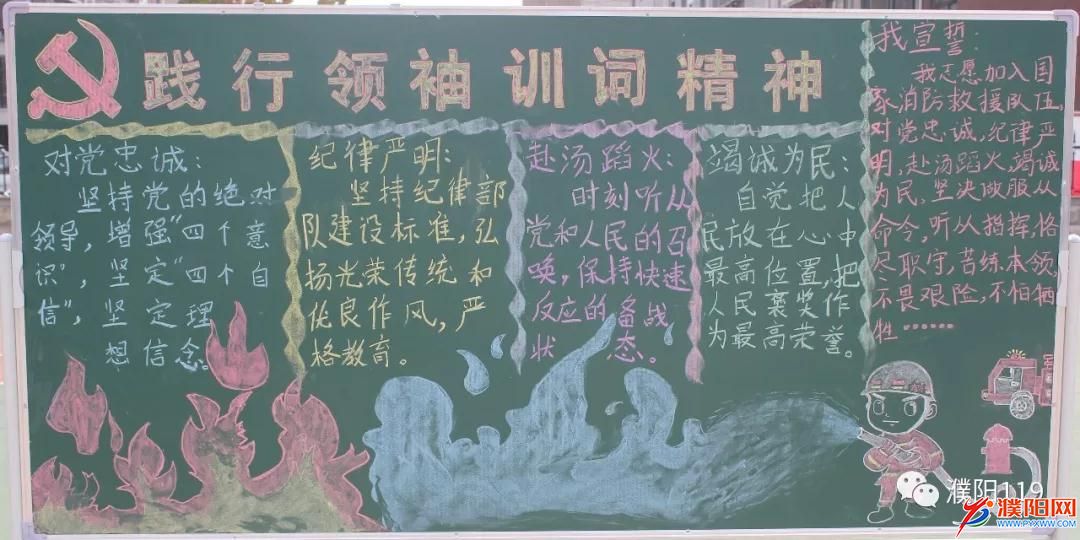 践行领袖训词精神
对党忠诚：
坚持党的绝对
领导，增强“四个意
识”，坚定“四个自
信”，坚定理
想信念。
纪律严明：
坚持纪律部
队建设标准，弘
扬光荣传统和
优良作风，严
格教育。
赴汤蹈火：
时刻听从
党和人民的召
唤，保持快速
反应的备战
状态。
竭诚为民：
自觉把人
民放在心中
最高位置，把
人民褒奖作
为最高荣誉。
我宣誓：
我志愿加入国
家消防救援队伍，
对党忠诚，纪律严
明，赴汤蹈火，竭诚
为民，坚决做服从
命令，听从指挥，恪
尽职守，苦练本领，
不畏艰险，不怕牺
牲……
濮阳119
濮阳网
WWW.PYXWW.COM